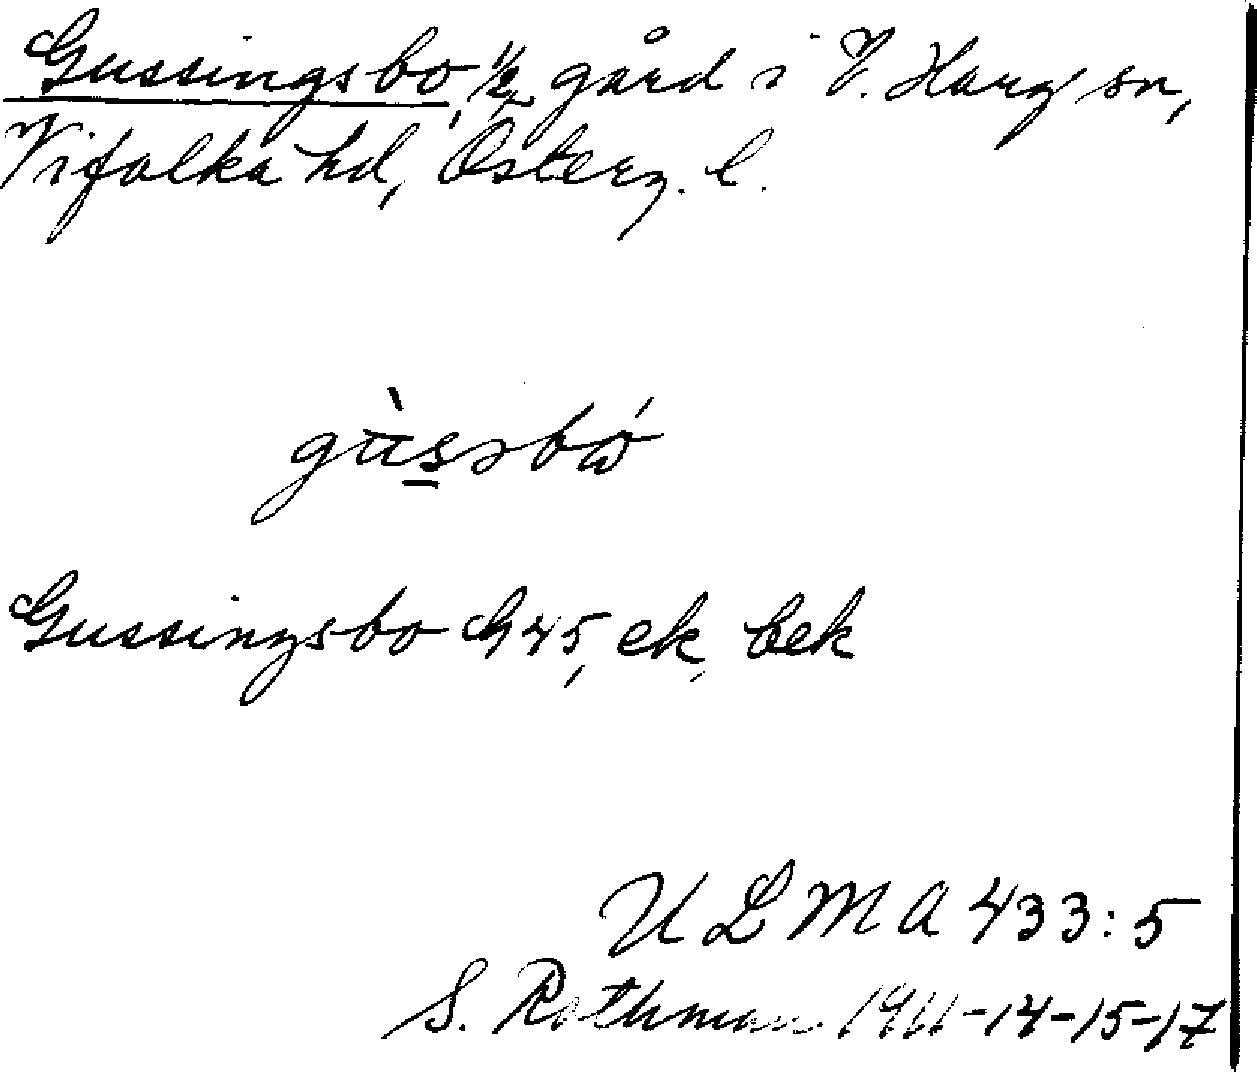 Gussingsbo, 1/2 gård i V. Harg sn,
Vifolka hd, Österg. l.
gùsəbώ
Gussingsbo G45, ek, bek
ULMA 433:5
S. Rothman 1911-14-15-17